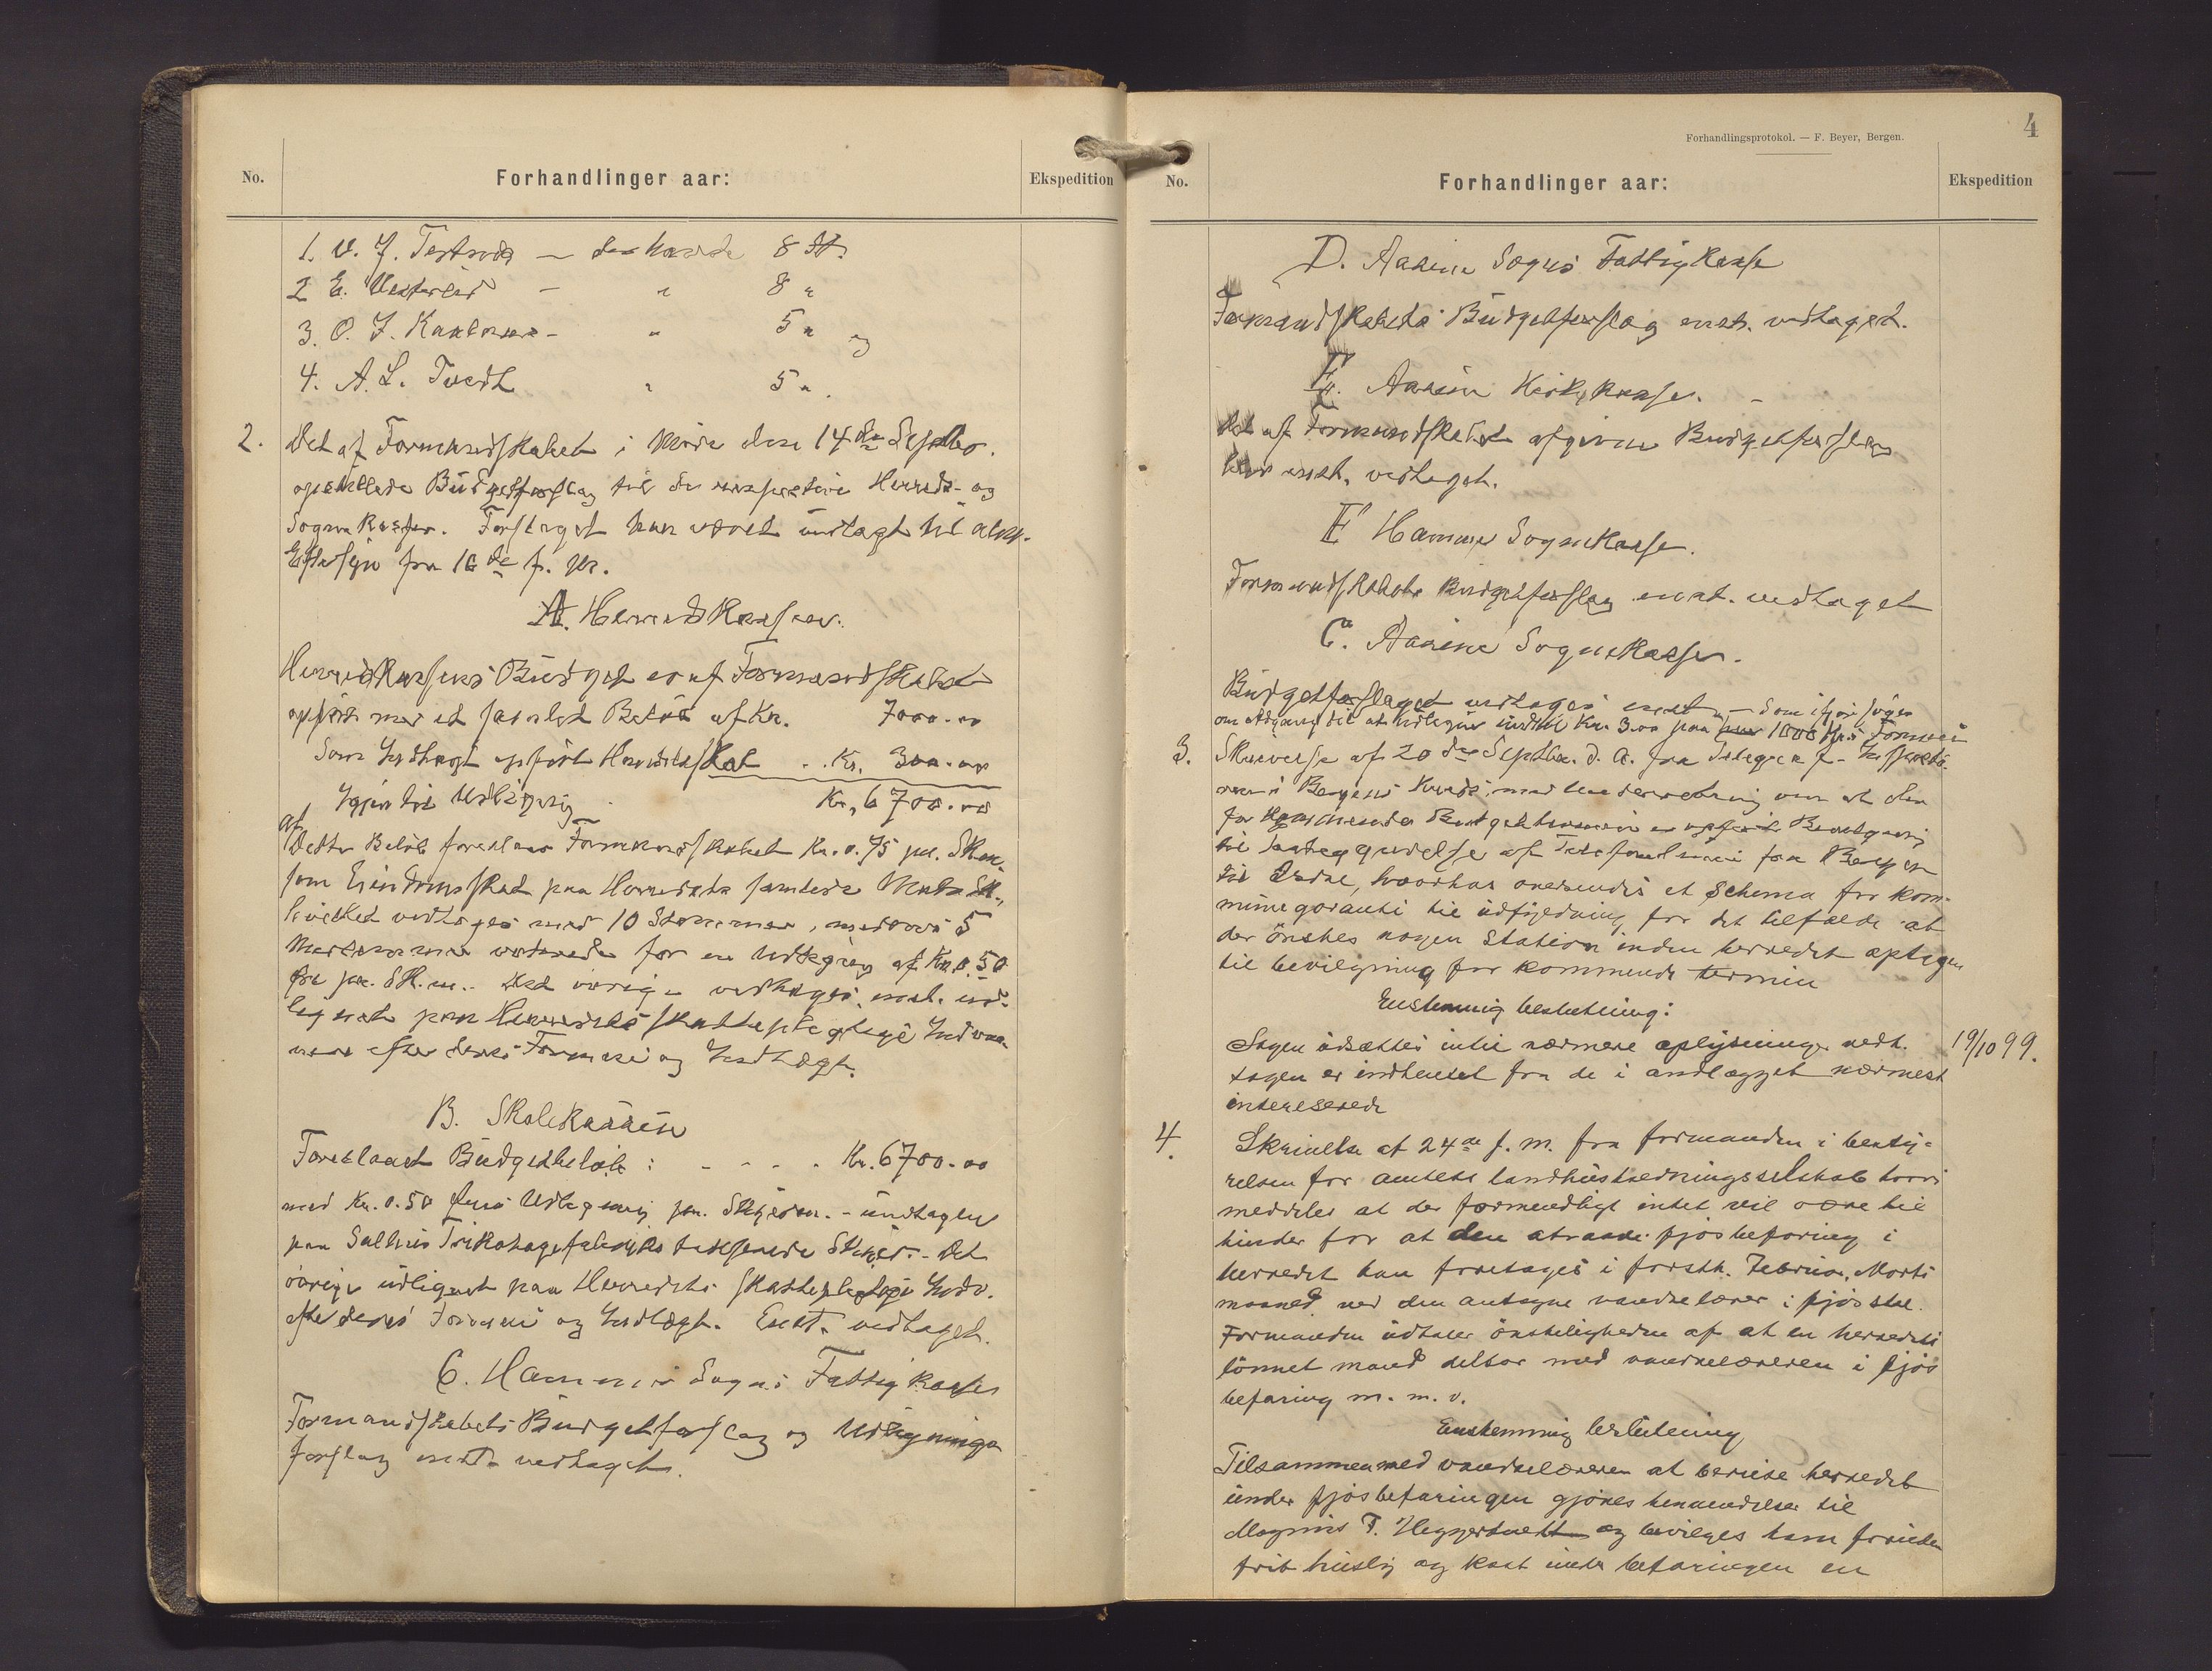 No.
Forhandlinger aar:
Ekspedition
1. V. J. Testrods — der havde 8 St.
2 E. Vesterlid — " 8 "
3. O. J. — " 5 " og
4. A. L. Tvedt " 5 ".
2. Det af Formandskabet i Møde den 14de Septbr.
opstillede Budgetforslag til de respective Herreds- og
Sognekasser. Forslaget har været udlagt til alm.
Eftersyn fra 16de f. M.
A. Herredskassen.
Herredskassens Budget er af Formandskabet
opført med et samlet Beløb af Kr. 7000.00
Som Indtægt opført Herredsskat .. Kr. 300.00
Igjen til Udligning Kr. 6700.00
af
Dette Beløb foreslaar Formandskabet Kr. 0.75 pr. Skm.
som Eiendomsskat paa Herredets samlede Matr.Sk.,
hvilket vedtages med 10 Stemmer, medens 5
Medlemmer voterede for en Udligning af Kr. 0.50
øre pr. Sk.m. Det øvrige vedtages enst. ud-
lignet paa Herredets skattepligtige Indvaa-
nere efter deres Formue og Indtægt.
B. Skolekassen
Foreslaaet Budgetbeløb : - - - . Kr. 6700.00
med Kr. 0.50 Øres Udligning pr. Skjldm. - undtagen
paa Salhus Trikotagefabriks Skyld. - Det
øvrige udlignet paa Herredets skattepligtige Indv.
efter deres Formue og Indtægt. Enst. vedtaget.
C. Hammer Sogns Fattigkasse
Formandskabets Budgetforslag og Udlignings
forslag enst. vedtaget.
Forhandlingsprotokol. — F. Beyer, Bergen.
4
No.
Forhandlinger aar:
Ekspedition
D. Aasene Sogns Fattigkasse
Formandskabets Budgetforslag enst. vedtaget.
E. Aasene Kirkekasse. -
Det af Formandskabet afgivne Budgetforslag
blev enst. vedtaget.
F Hammer Sognekasse.
Formandskabets Budgetforslag enst. vedtaget
G. Aasene Sognekasse.
Budgetforslaget vedtages enst. - Som ifjor søges
om Adgang til at udligne indtil Kr. 3.00 paa hver 1000 Kr.s Formue
3. Skrivelse af 20de Septbr. d. A. fra Telegraf-Inspektø-
ren i Bergens Kreds, med Underretning om at der
for kommende Budgettermin er opført Bevilgning
til Istandbringelse af Telefonlinie fra Bergen
til , hvorhos oversendes et Schema for kom-
munegaranti til udfyldning for det tilfælde at
der ønskes nogen Station inden herredet optagen
til bevilgning for kommende termin
Enstemmig beslutning:
Sagen udsættes intil nærmere oplysninger vedk.
sagen er indhentet fra de i andlægget nærmest
interesserede
19/10 99.
4. Skrivelse af 24de f. m. fra formanden i besty-
relsen for amtets landhusholdningsselskab hvori
meddeles at der formendligt intet vil være til
hinder for at den attraaede fjøsbefaring i
herredet kan foretages i førsth. Februar, Marts
maaned ved den antagne vandrelærer i fjøsstel.
Formanden udtaler ønskeligheden af at en herredets
lønnet mand deltar med vandrelæreren i fjøs
befaring m. m. v.
Enstemmig beslutning
Tilsammen med vandrelæreren at bereise herredet
under fjøsbefaringen gjøres henvendelse til
Magnus T. og bevilges ham foruden
frit huslig og kost under befaringen en